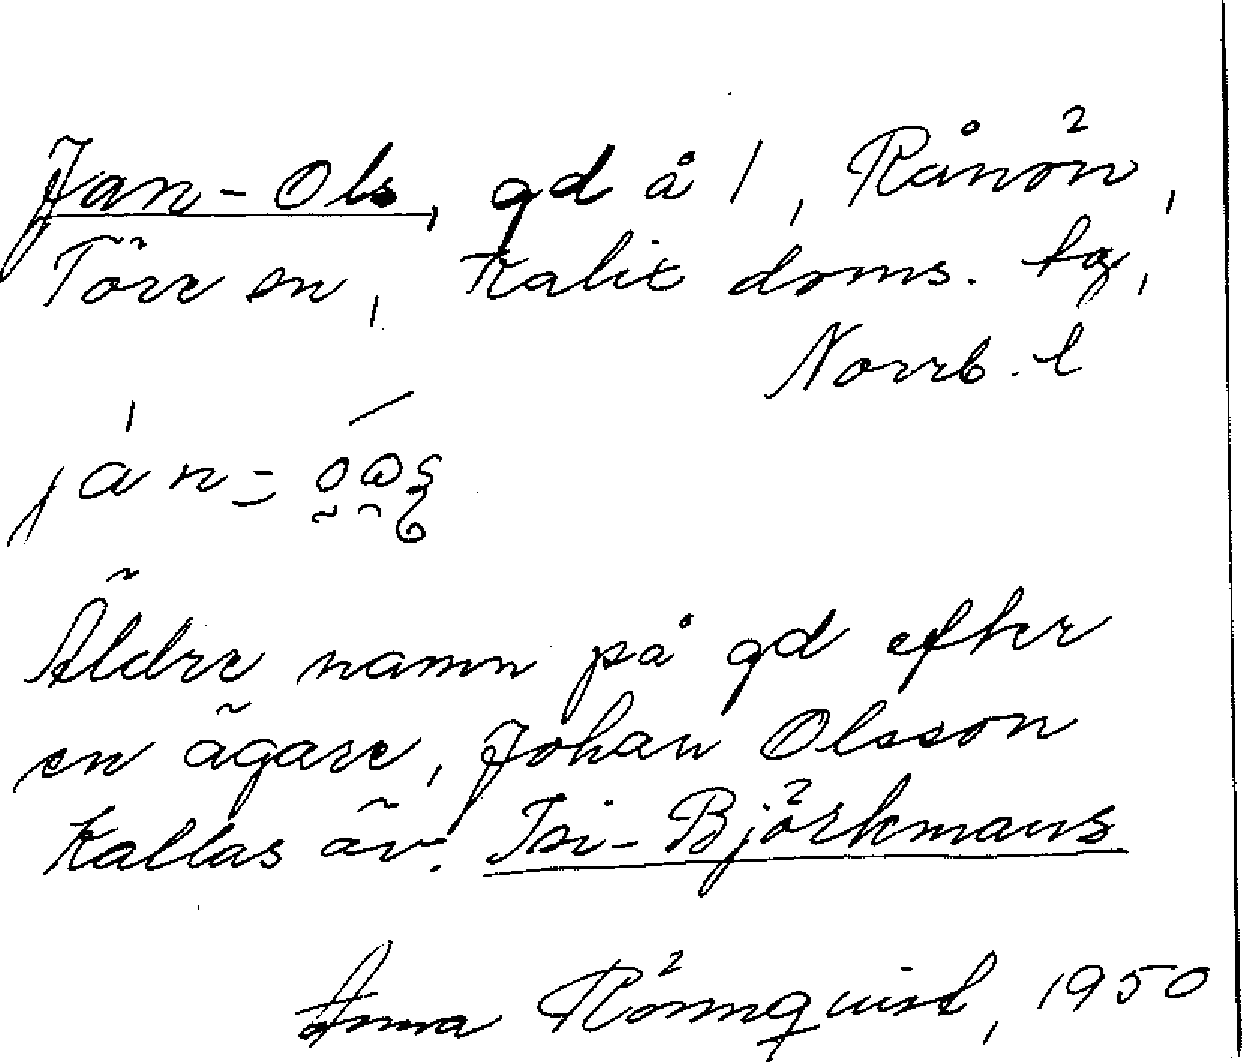 Jan-Ols, gd å 1, Rånön,
Töre sn, Kalix doms. tg,
Norrb. l
Äldre namn på gd efter
en ägare, Johan Olsson
Kallas äv. Isi-Björkmans
Anna Rönnquist, 1950